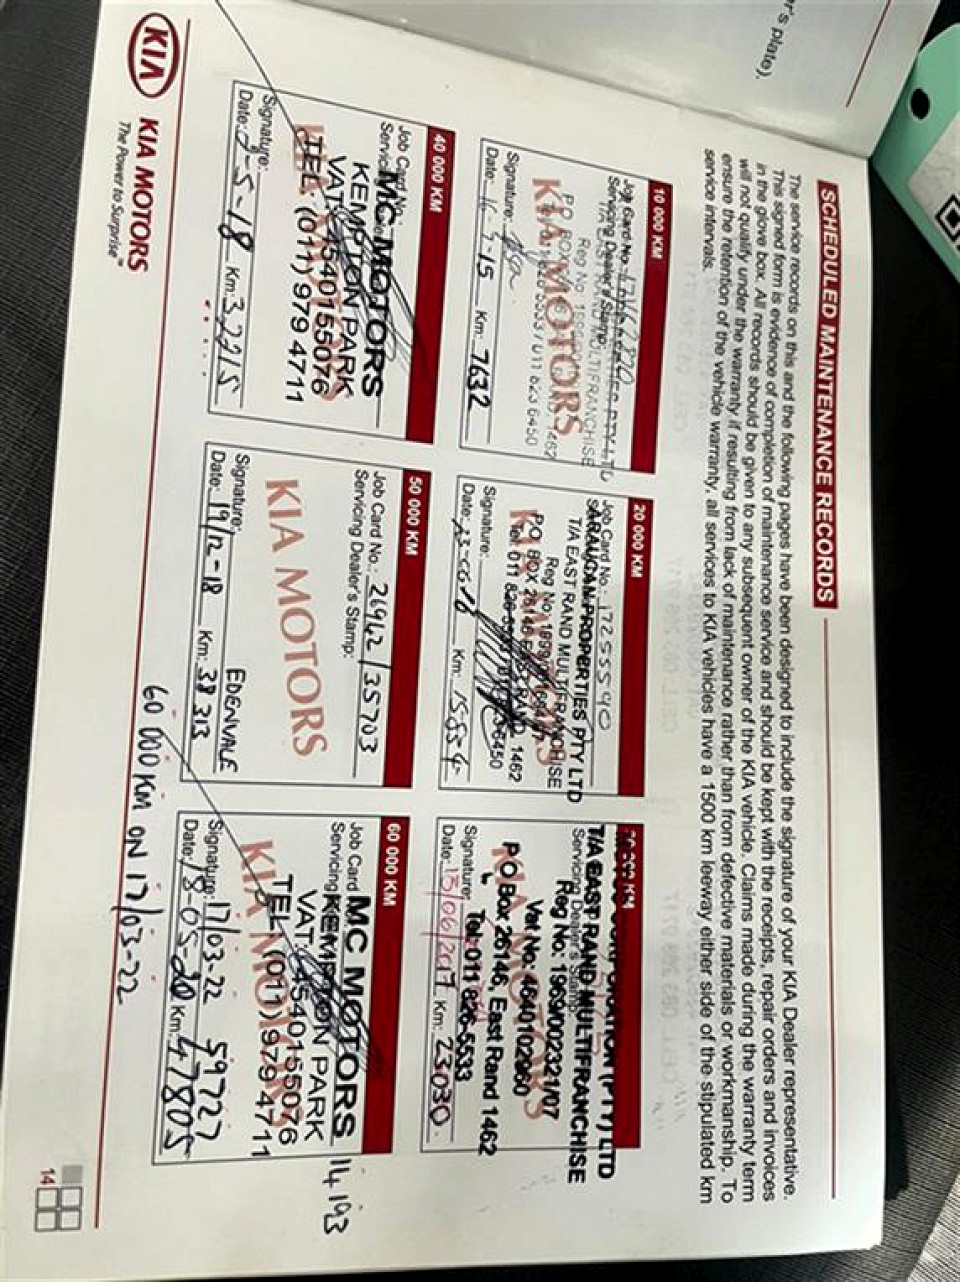 r's plate).
SCHEDULED MAINTENANCE RECORDS
The service records on this and the following pages have been designed to include the signature of your KIA Dealer representative.
This signed form is evidence of completion of maintenance service and should be kept with the receipts, repair orders and invoices
in the glove box. All records should be given to any subsequent owner of the KIA vehicle. Claims made during the warranty term
will not qualify under the warranty if resulting from lack of maintenance rather than from defective materials or workmanship. To
ensure the retention of the vehicle warranty, all services to KIA vehicles have a 1500 km leeway either side of the stipulated km
service intervals.
10 000 KM
Job Card No.:
Servicing Dealer's Stamp:
T/A EAST RAND MULTIFRANCHISE
KIA MOTORS
Signature:
Date: Km: 7632
20 000 KM
Job Card No.: 17255540
SARAUGAN PROPERTIES PTY LTD
T/A EAST RAND MULTIFRANCHISE
P.O. BOX 26146 EAST RAND, 1462
KIA MOTORS
Signature:
Date: Km:
T/A EAST RAND MULTIFRANCHISE
Servicing Dealer's Stamp:
Reg No: 1969/002321/07
Vat No: 4640102960
P O Box 26146, East Rand 1462
Tel: 011 826-5533
KIA MOTORS
Signature:
Date: 13/06/2017 Km: 23030
40 000 KM
Job Card No.
MC MOTORS
KEMPTON PARK
VAT: 4540155076
TEL: (011) 979 4711
KIA MOTORS
Signature:
Date: 2-5-18 Km: 32215
50 000 KM
Job Card No.: 26942/35703
Servicing Dealer's Stamp:
KIA MOTORS
EDENVALE
Signature:
Date: 19/12-18 Km: 38313
60 000 KM
Job Card
MC MOTORS 14,193
Servicing KEMPTON PARK
VAT: 4540155076
TEL: (011) 979 4711
KIA MOTORS
Signature: 17/03-22 59727
Date: 18-05-20 Km: 47805
60 000 KM ON 17/03-22
KIA KIA MOTORS
The Power to Surprise™
14